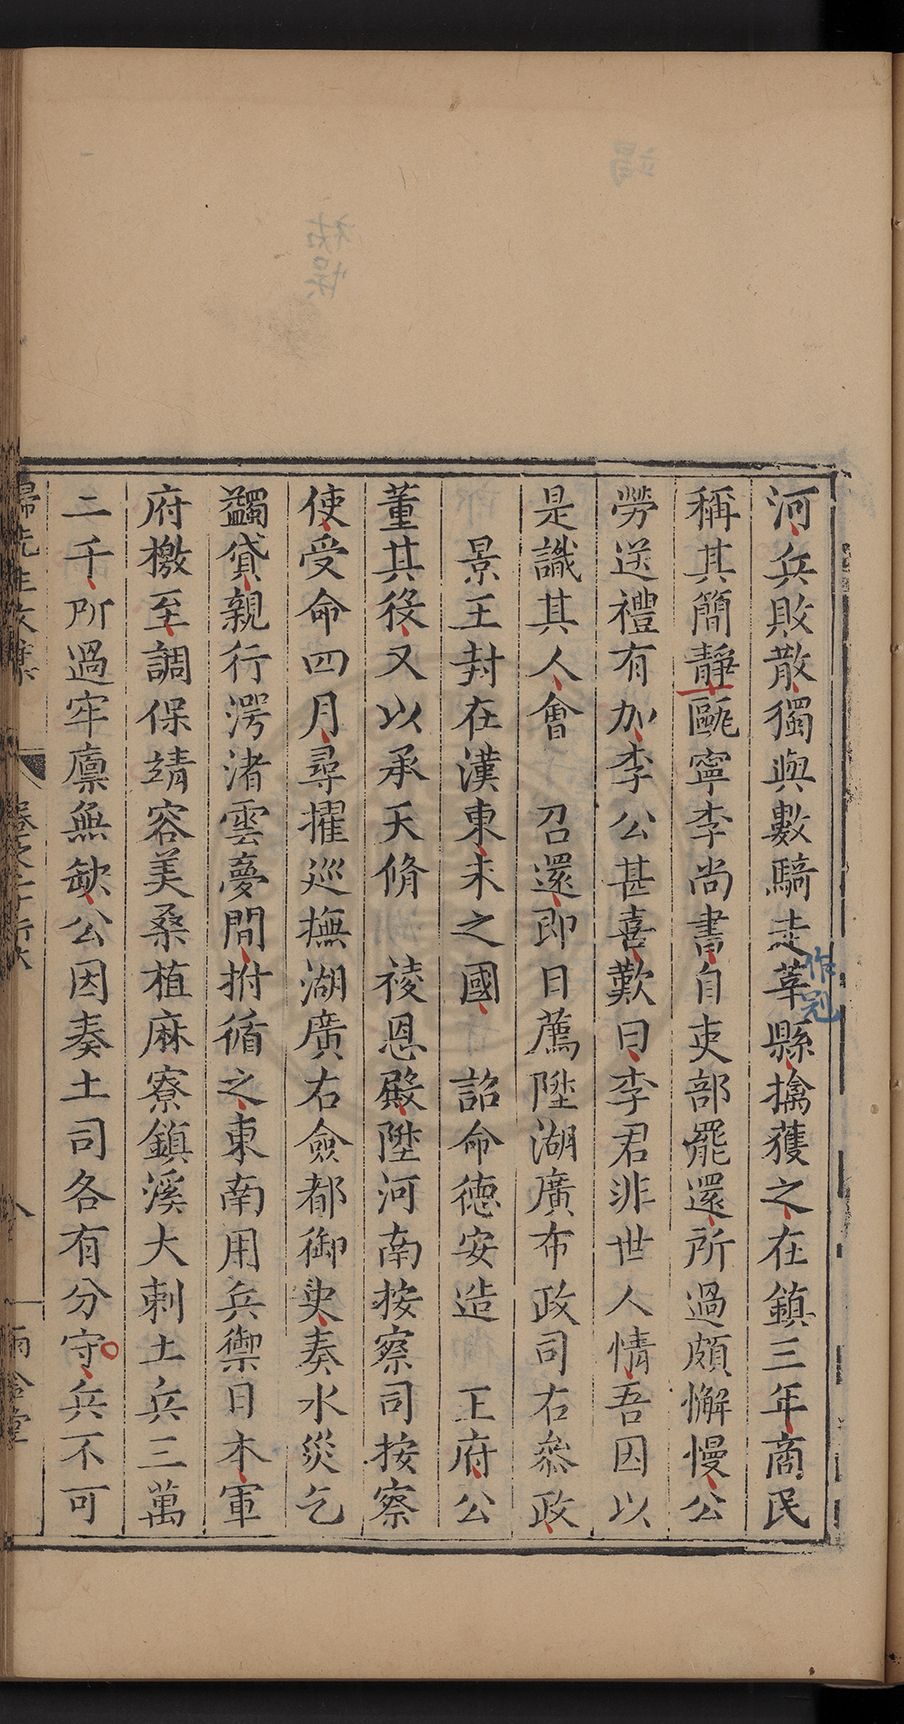 河兵敗散獨與數騎走莘縣擒獲之在鎮三年商民
作冠
稱其簡靜甌寧李尚書自吏部罷還所過頗懈慢公
勞送禮有加李公甚喜歎曰李君非世人情吾因以
是識其人會 召還即日薦陞湖廣布政司右叅政
景王封在漢東未之國 詔命德安造 王府公
董其役又以承天脩 祾恩殿陞河南按察司按察
使受命四月尋擢巡撫湖廣右僉都御史奏水災乞
蠲貸親行滯渚雲夢間拊循之東南用兵禦日本軍
府檄至調保靖容美桑植麻寮鎮溪大剌土兵三萬
二千所過牢廪無缺公因奏土司各有分守兵不可